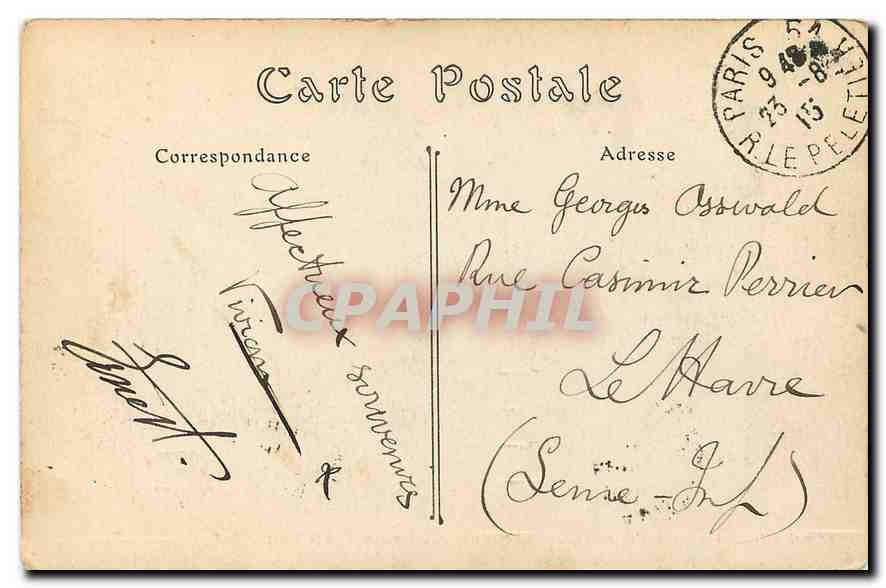 Carte Postale
Correspondance
Affectueux souvenirs
Vivian
Ernest
Adresse
Mme Georges Osswald
Rue Casimir Perrier
Le Havre
(Seine-Inf)
PARIS 51
R. LE PELETIER
23 -8
15
CPAPHIL